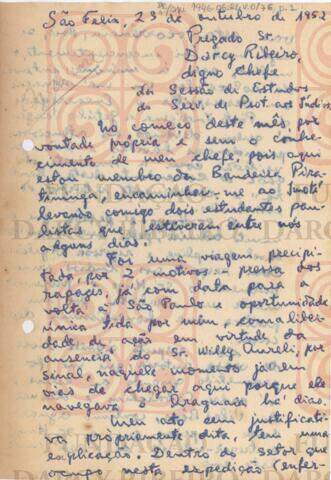 São Felix, 23 de outubro de 1952
Prezado Sr.
Darcy Ribeiro,
digno Chefe
da Sessão de Estudos
do Serv. de Prot. aos Indios
No começo deste mês, por
vontade propria e sem o conhe-
cimento de meu chefe, pois aqui
estou membro da Bandeira Pira-
tininga, encaminhei-me ao
levando comigo dois estudantes pau-
listas que estiveram entre nós
alguns dias.
Foi uma viagem precipi-
tada, por 2 motivos - pressa dos
rapazes, já com data para a
volta à São Paulo e oportunidade
única tida por mim, com a liber-
dade de ação em virtude da
ausencia do Sr. Willy Aureli, por
sinal, naquele momento já em
vias de chegar aqui porque ele
navegava o Araguaia há dias.
Meu ato sem justificati-
va propriamente dita, tem uma
explicação. Dentro do setor que
ocupo nesta expedição (enfer-